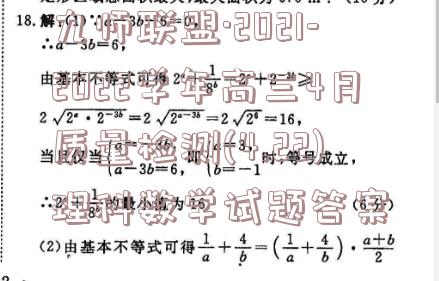 18. 解,(1)∵a-3b-6=0,
∴a-3b=6,
由基本不等式可得 2^a+1/8^b=2^a+2^{-3b}≥
2√(2^a·2^{-3b})=2√(2^{a-3b})=2√(2^6)=16,
当且仅当{a=-3b, a-3b=6 即{a=3, b=-1 时,等号成立,
∴2^a+1/8^b的最小值为 16. (6分)
(2)由基本不等式可得 1/a+4/b=(1/a+4/b)·(a+b)/2
九师联盟·2021-
2022学年高三4月
质量检测(4.22)
理科数学试题答案